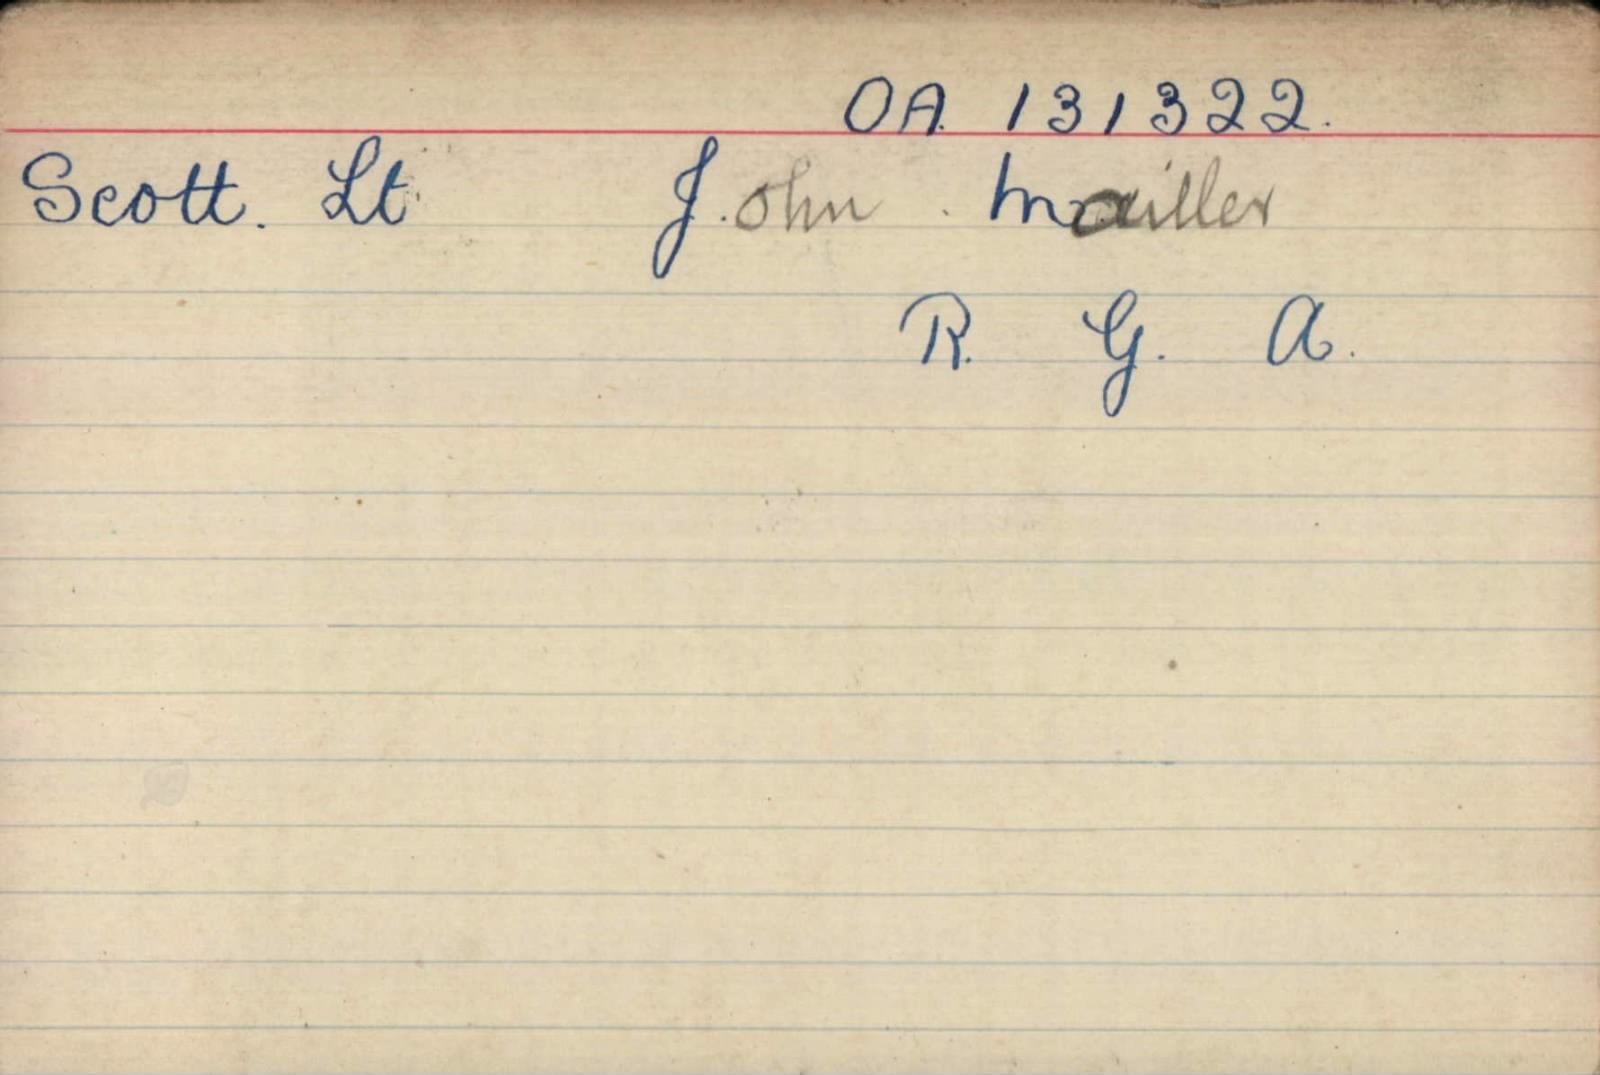 OA 131322.
Scott. Lt J. ohn . Mailler
R. G. A.